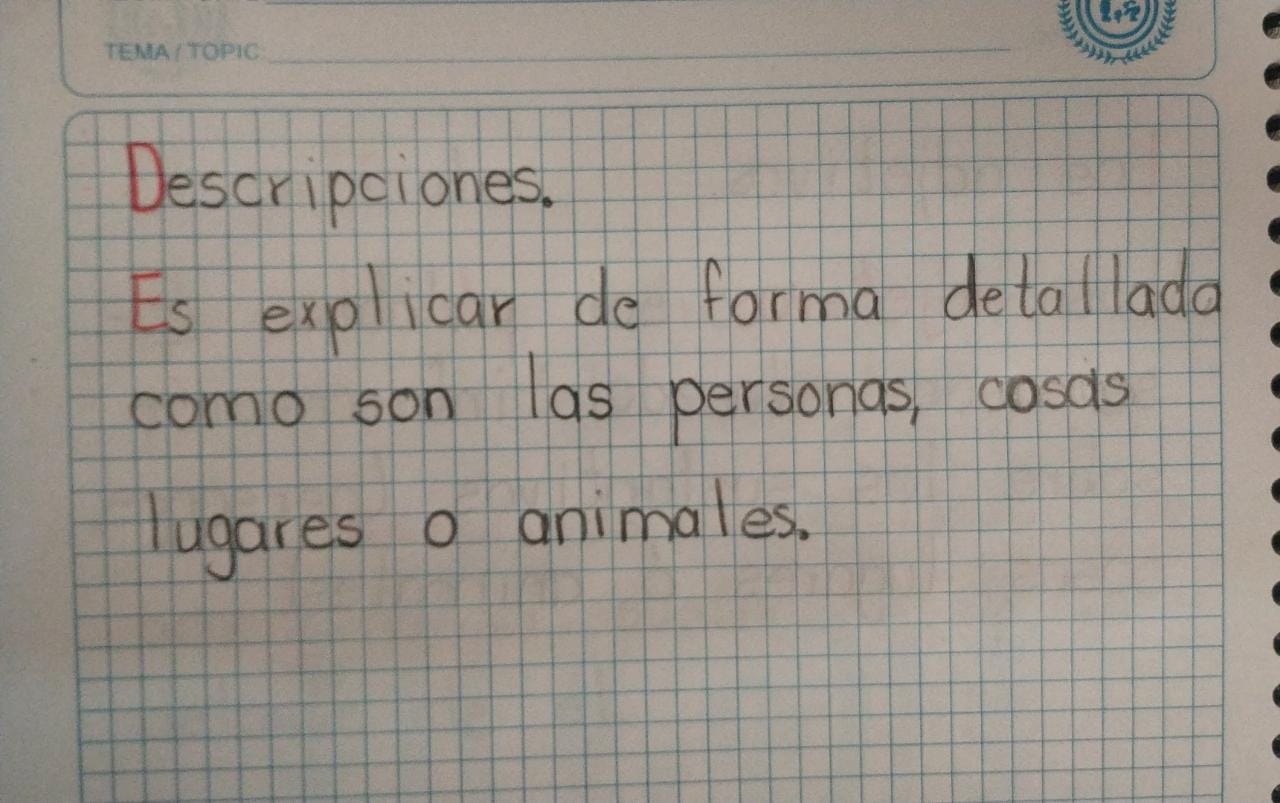 TEMA / TOPIC
Descripciones.
Es explicar de forma detallada
como son las personas, cosas
lugares o animales.